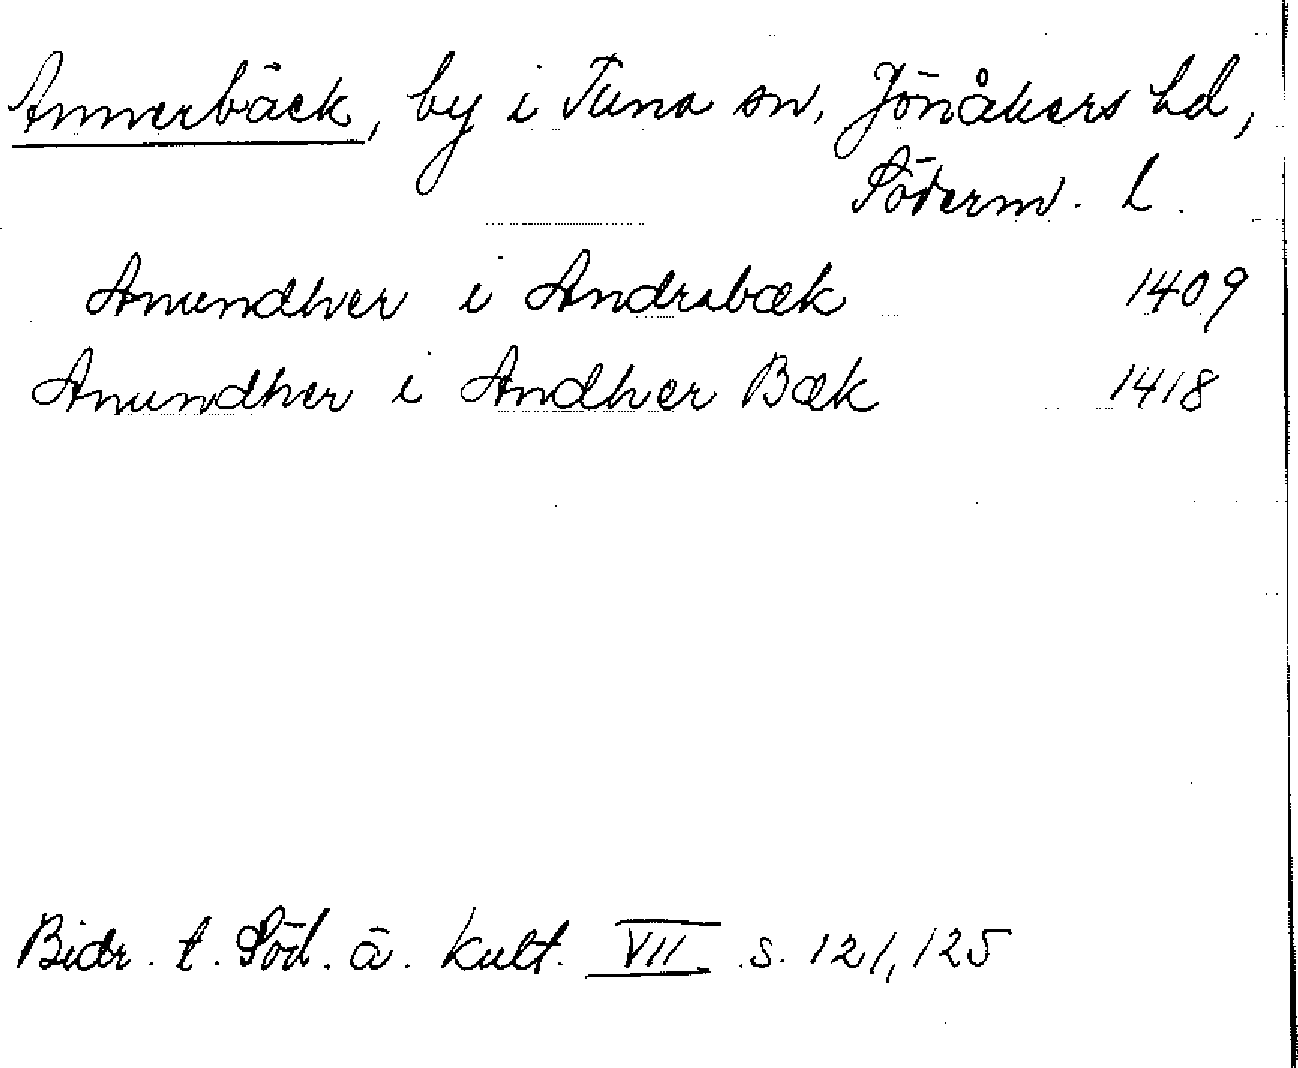 Annerbäck, by i Tuna sn, Jönåkers hd,
Söderm. L.
Anundhver i Andrabæk 1409
Anundher i Andhver Bæk 1418
Bidr. t. Söd. ä. Kult. VII s. 121, 125